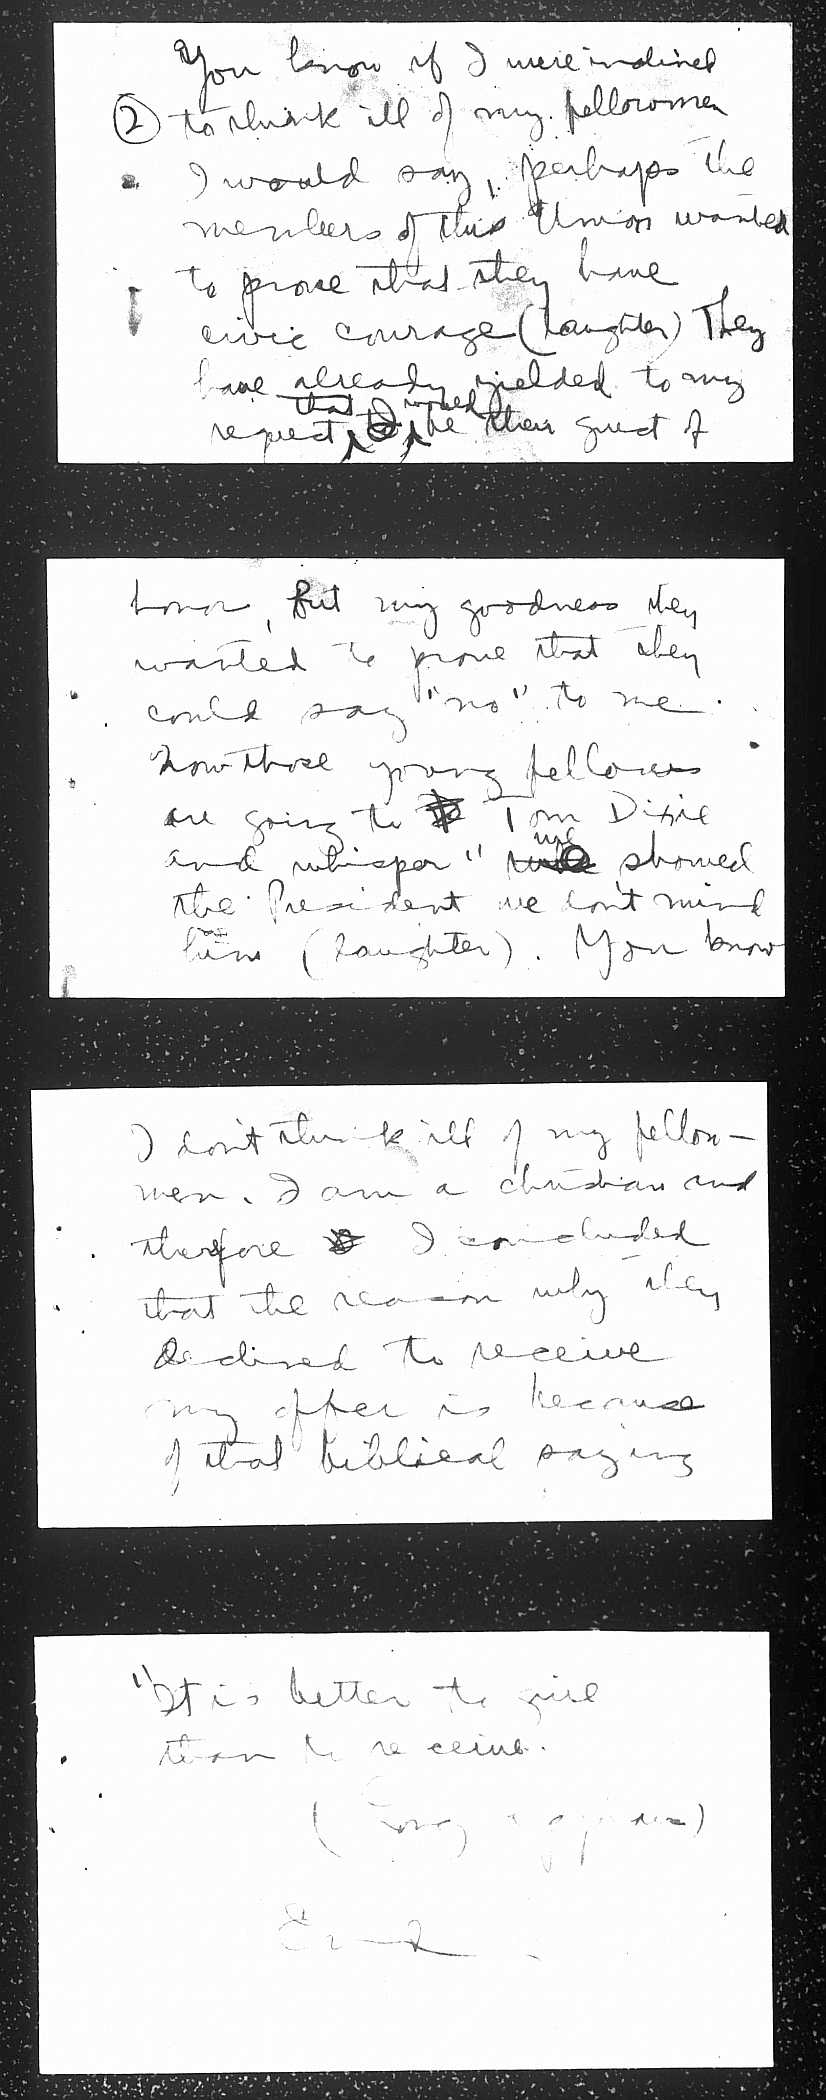 "You know if I were inclined
② to think ill of my fellowmen
I would say, perhaps the
members of this Union wanted
to prove that they have
civic courage (laughter) They
have already yielded to my
that I would
request, to be their guest of
honor, But my goodness they
wanted to prove that they
could say "no" to me.
Now those young fellows
are going to Tom Dixie
and whisper " we showed
the President we don't mind
him (laughter). You know
I don't think ill of my fellow-
men. I am a christian and
therefore I concluded
that the reason why they
declined to receive
my offer is because
of that biblical saying
"It is better to give
than to receive.
(Long applause)
End